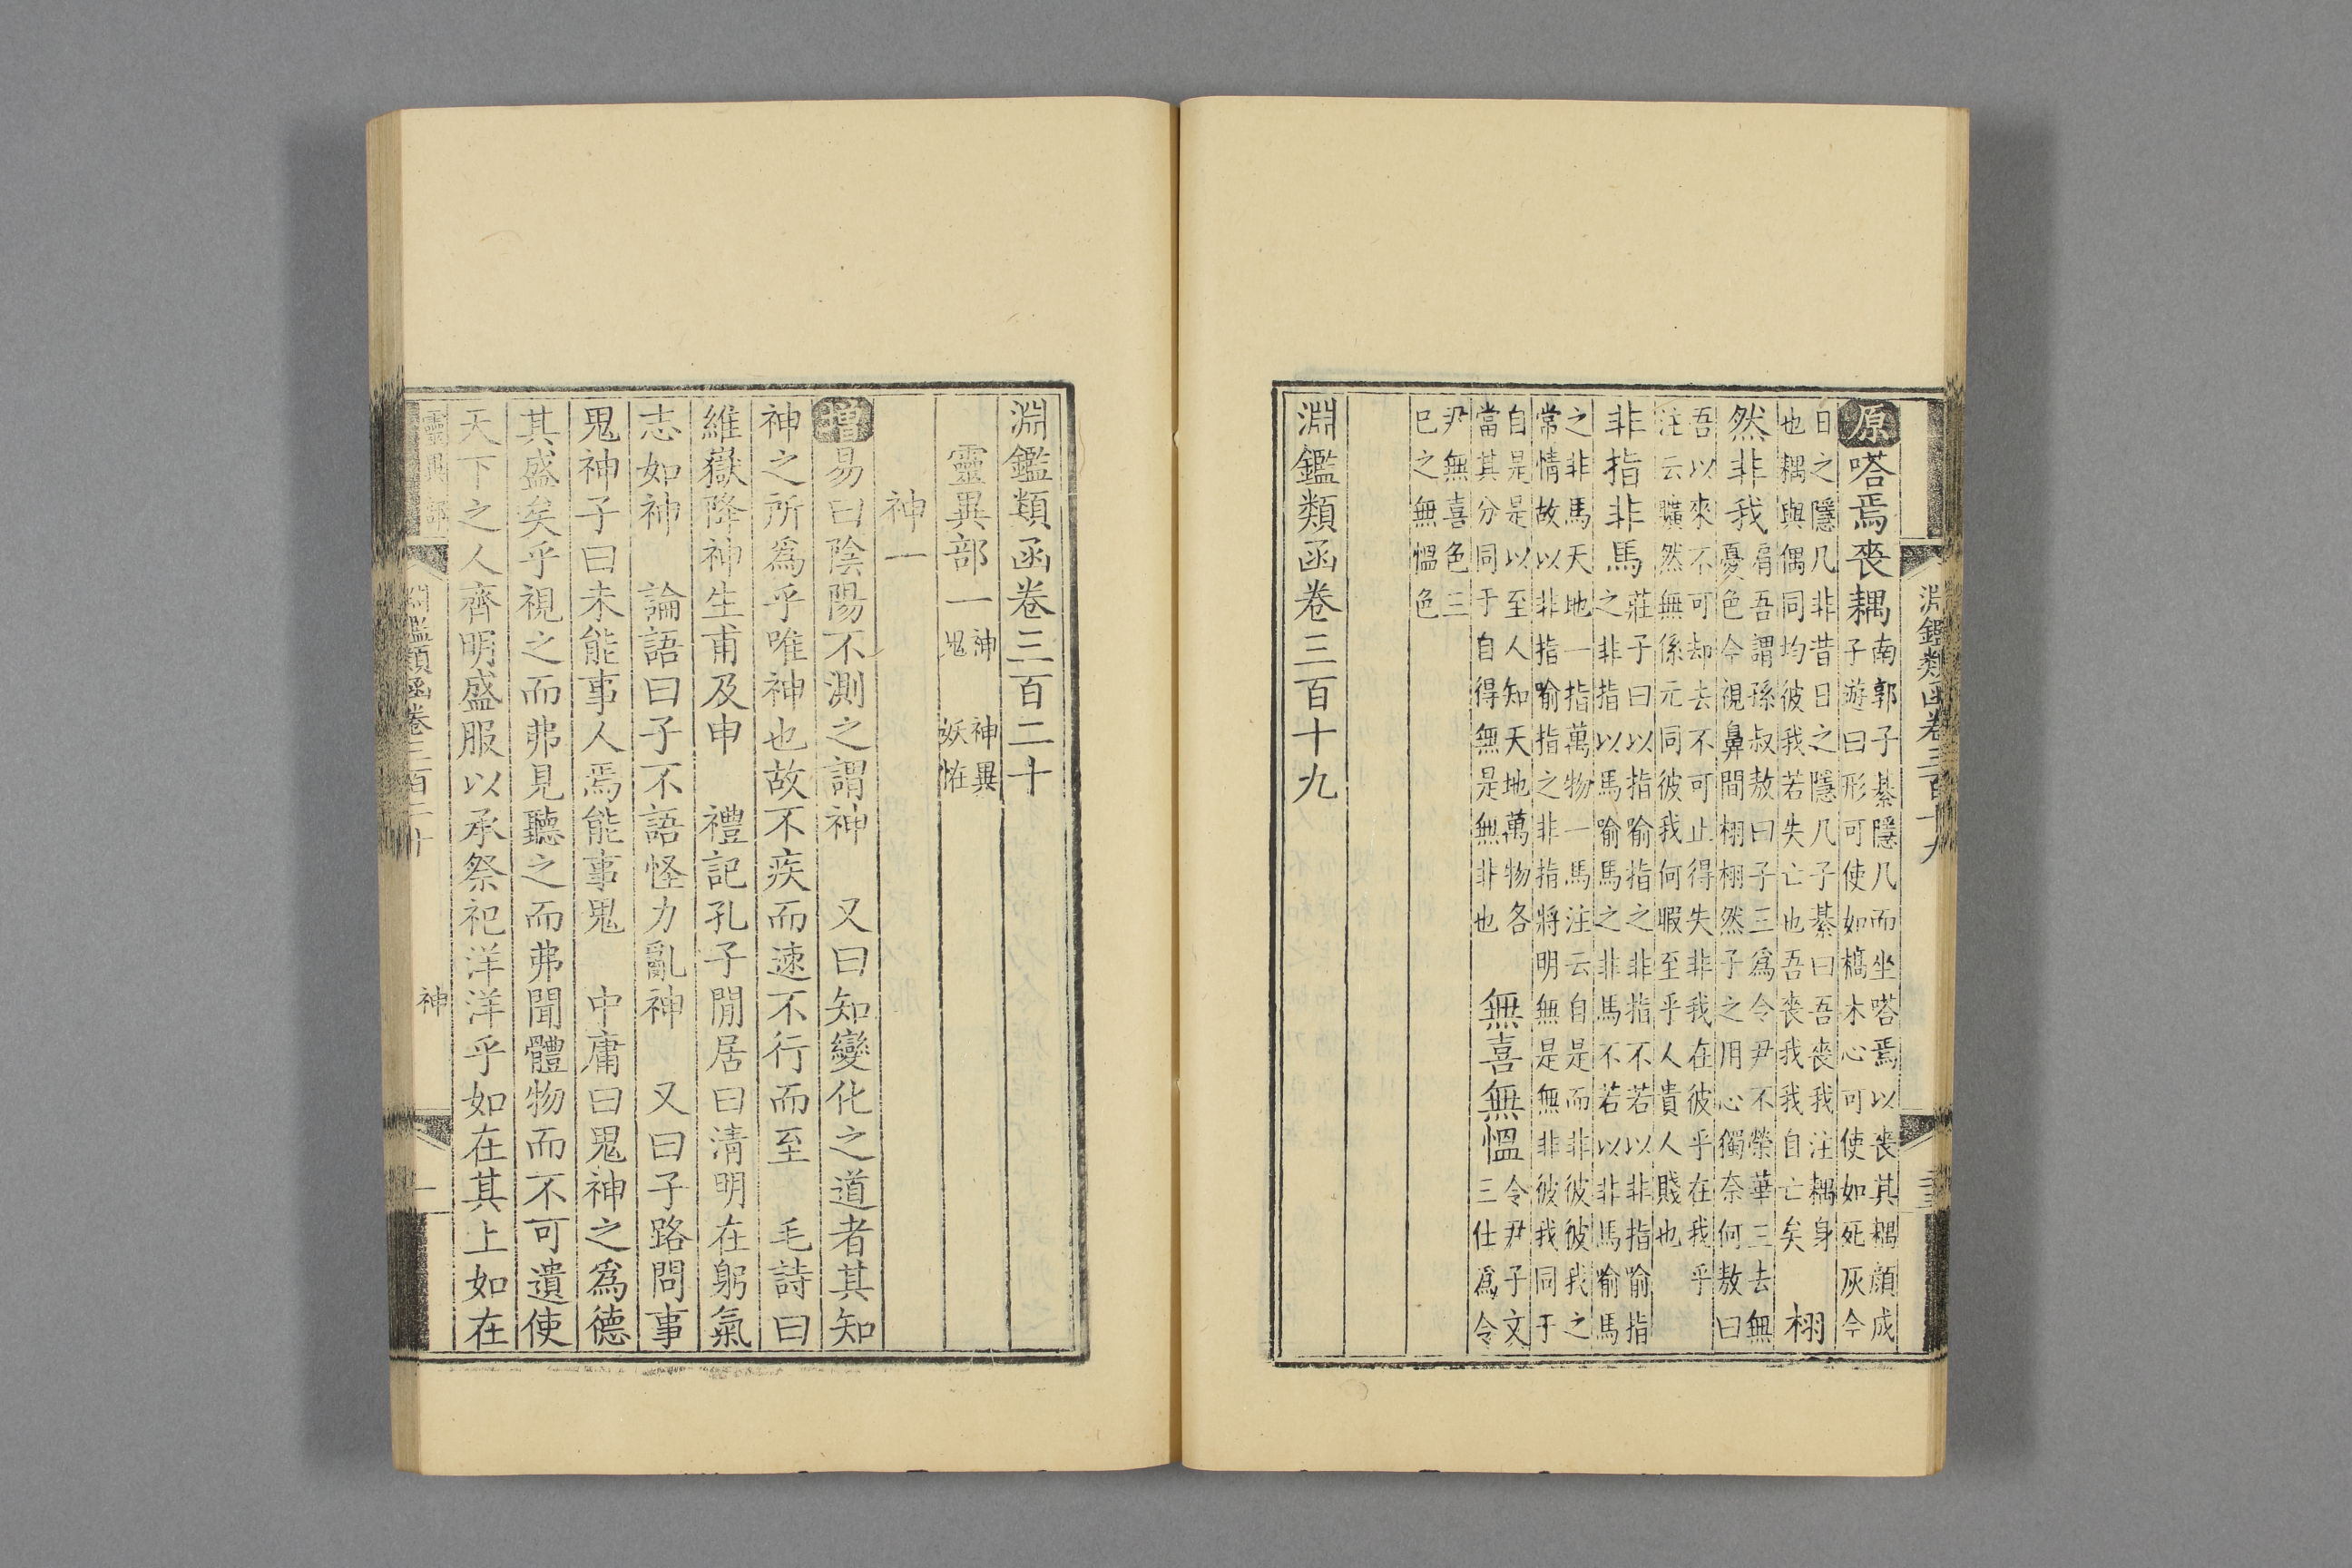 原嗒焉喪耦南郭子綦隱几而坐嗒焉以喪其耦顔成
子游曰形可使如槁木心可使如死灰今
日之隱几非昔日之隱几子綦曰吾喪我注耦身
也耦與偶同均彼我若失亡也吾喪我我自亡矣
栩
然非我肩吾謂孫叔敖曰子三爲令尹不榮華三去無
憂色今視鼻間栩栩然子之用心獨奈何敖曰
吾以來不可却去不可止得失非我在彼乎在我乎
注云曠然無係元同彼我何暇至乎人貴人賤也
非指非馬莊子曰以指喻指之非指不若以非指喻指
之非指以馬喻馬之非馬不若以非馬喻馬
之非馬天地一指萬物一馬注云自是而非彼彼我之
常情故以非指喻指之非指將明無是無非彼我同于
自是是以至人知天地萬物各
當其分同于自得無是無非也
無喜無愠令尹子文
三仕爲令
尹無喜色三
已之無愠色
淵鑑類函卷三百十九
淵鑑類函卷三百十九
淵鑑類函卷三百二十
靈異部一神 神異
鬼 妖怪
神一
增易曰陰陽不測之謂神 又曰知變化之道者其知
神之所爲乎唯神也故不疾而速不行而至 毛詩曰
維嶽降神生甫及申 禮記孔子閒居曰清明在躬氣
志如神 論語曰子不語怪力亂神 又曰子路問事
鬼神子曰未能事人焉能事鬼 中庸曰鬼神之爲德
其盛矣乎視之而弗見聽之而弗聞體物而不可遺使
天下之人齊明盛服以承祭祀洋洋乎如在其上如在
靈異部 淵鑑類函卷三百二十 神 一